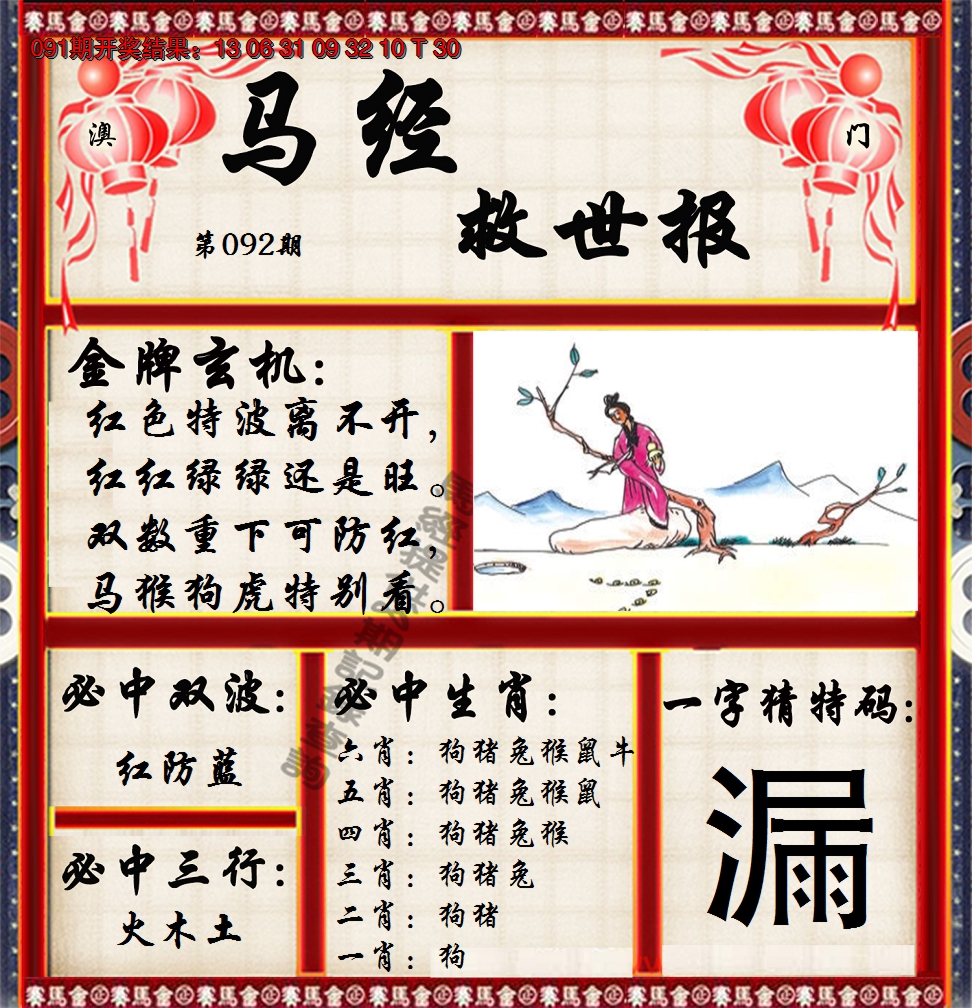 賽馬會
091期开奖结果：13 06 31 09 32 10 T 30
澳
门
马经
救世报
第092期
金牌玄机：
红色特波离不开，
红红绿绿还是旺。
双数重下可防红，
马猴狗虎特别看。
必中双波：
红防蓝
必中三行：
火木土
必中生肖：
六肖：狗猪兔猴鼠牛
五肖：狗猪兔猴鼠
四肖：狗猪兔猴
三肖：狗猪兔
二肖：狗猪
一肖：狗
一字猜特码：
漏
賽馬會